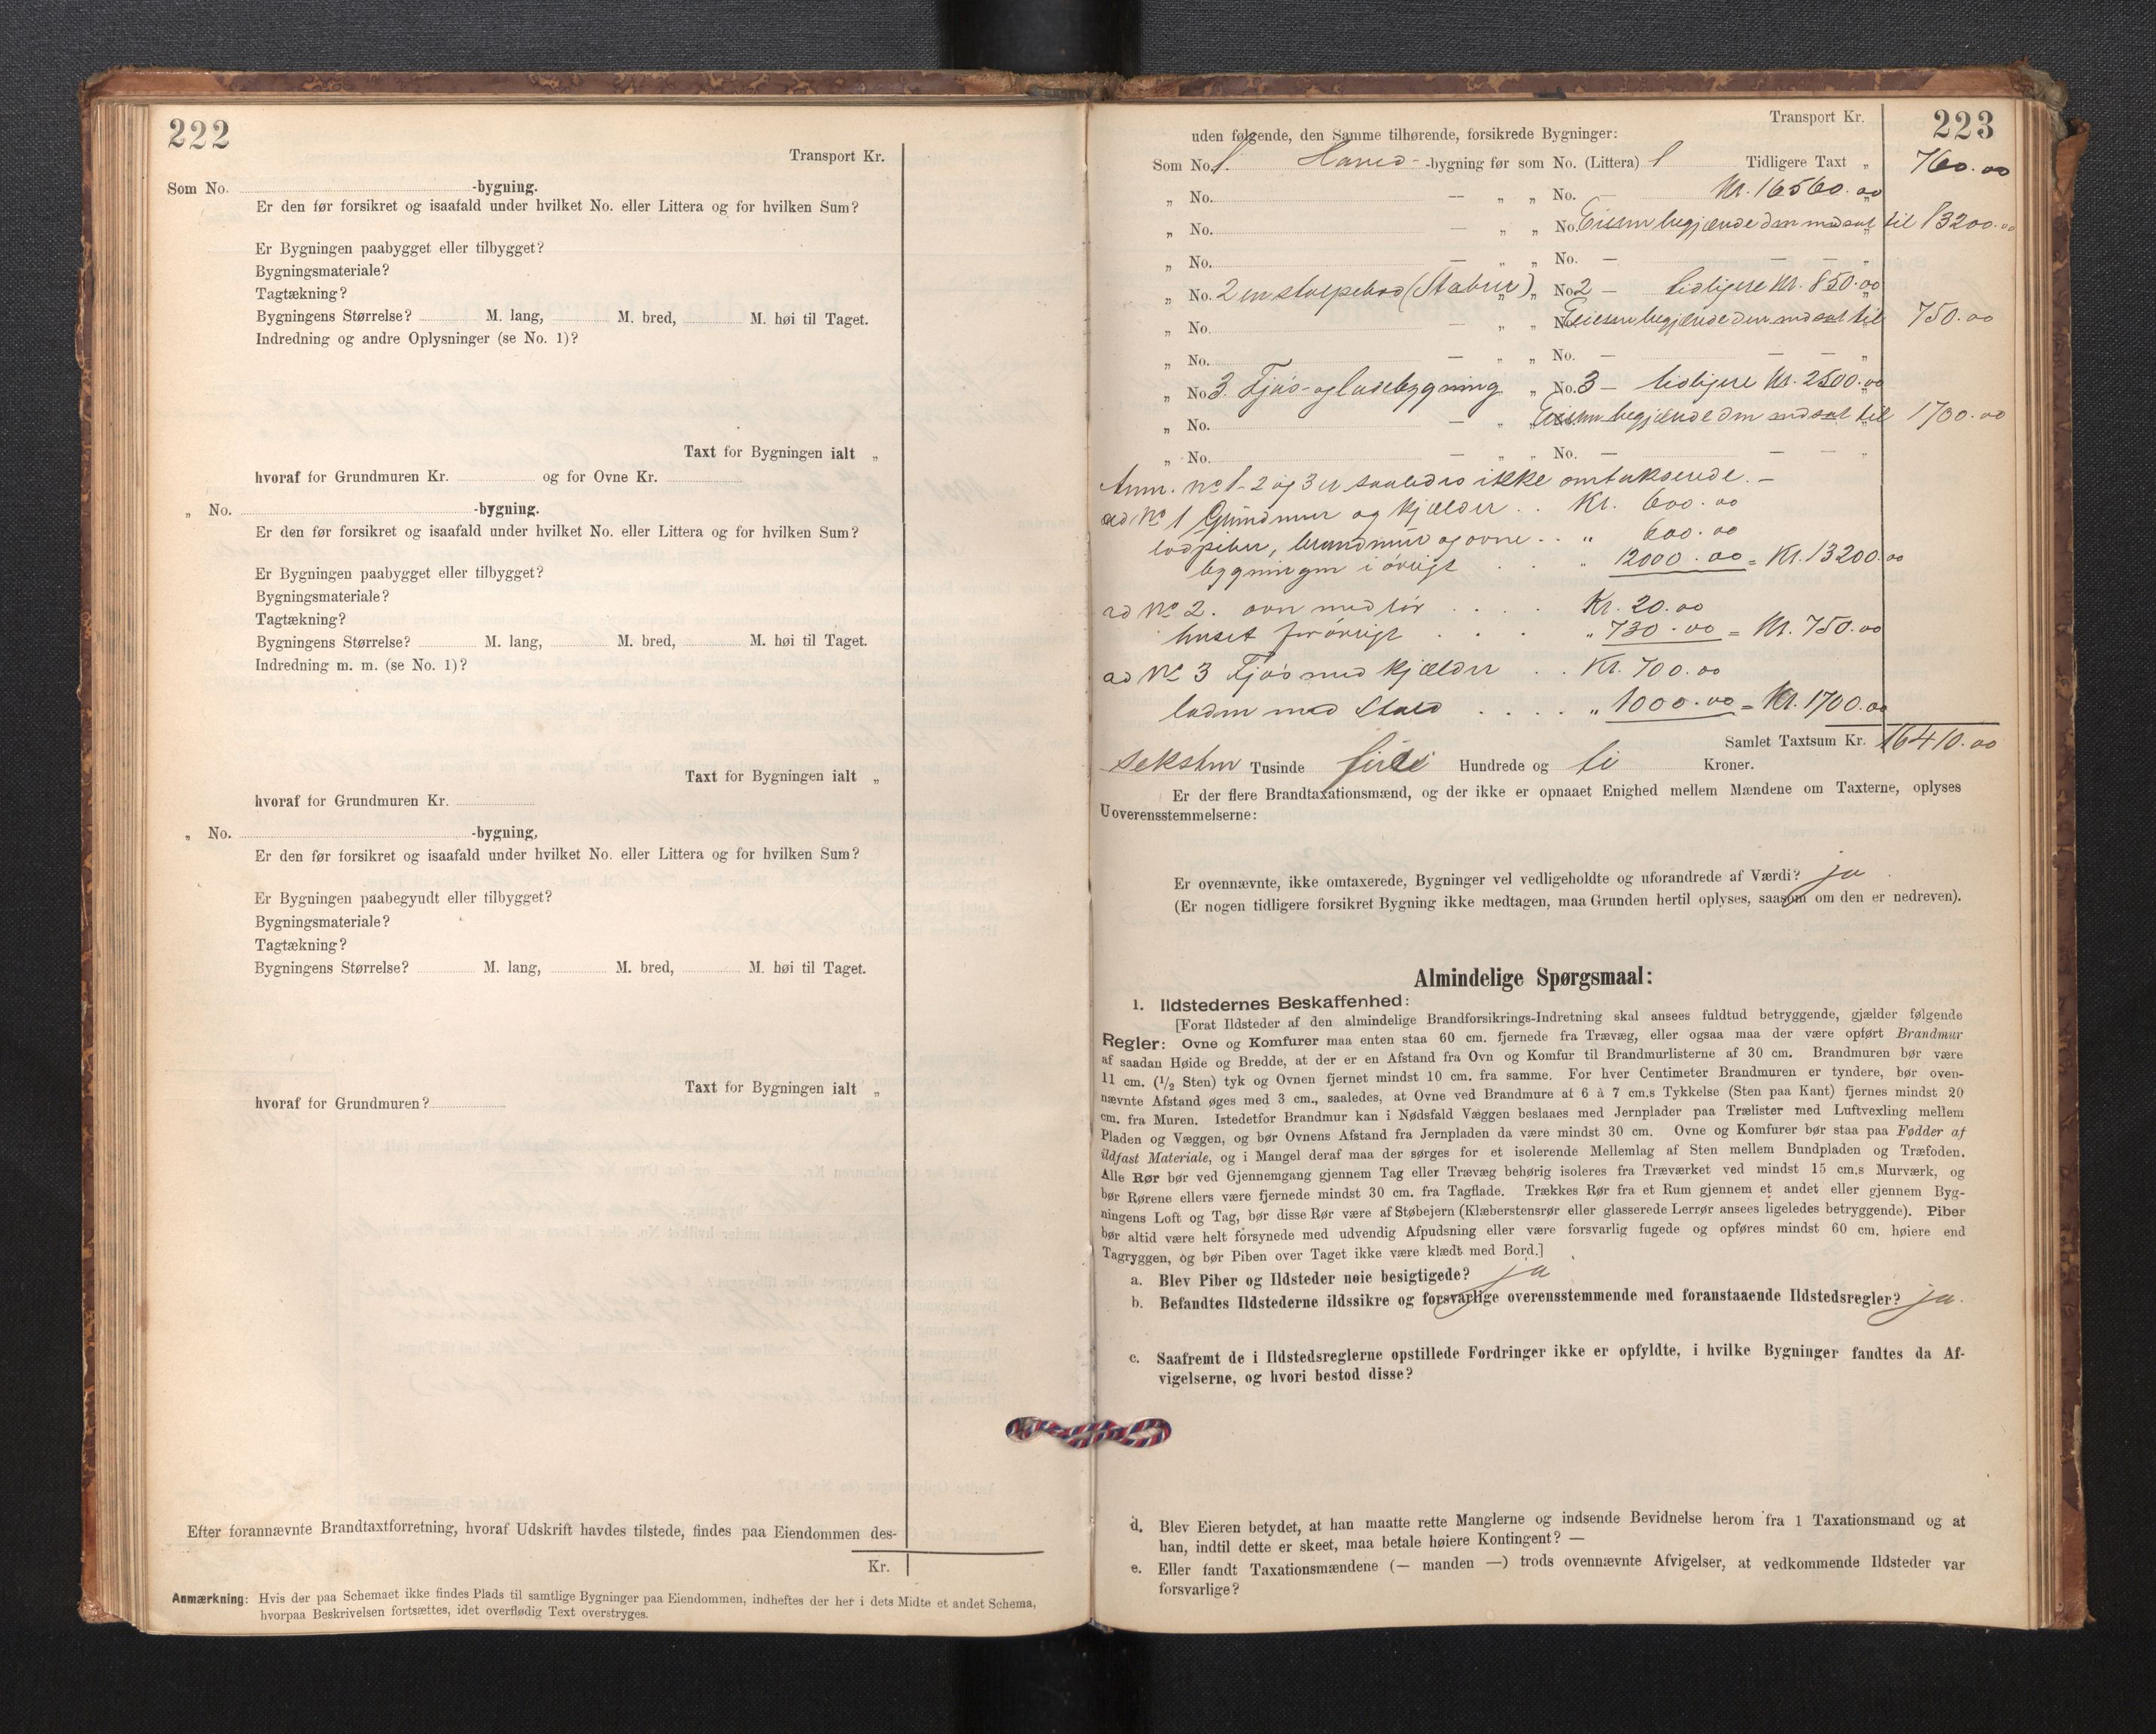 222
Transport Kr.
Som No. -bygning.
Er den før forsikret og isaafald under hvilket No. eller Littera og for hvilken Sum?
Er Bygningen paabygget eller tilbygget?
Bygningsmateriale?
Tagtækning?
Bygningens Størrelse? M. lang, M. bred, M. høi til Taget.
Indredning og andre Oplysninger (se No. 1)?
Taxt for Bygningen ialt „
hvoraf for Grundmuren Kr. og for Ovne Kr.
„ No. -bygning.
Er den før forsikret og isaafald under hvilket No. eller Littera og for hvilken Sum?
Er Bygningen paabygget eller tilbygget?
Bygningsmateriale?
Tagtækning?
Bygningens Størrelse? M. lang, M. bred, M. høi til Taget.
Indredning m. m. (se No. 1)?
Taxt for Bygningen ialt „
hvoraf for Grundmuren Kr.
„ No. -bygning,
Er den før forsikret og isaafald under hvilket No. eller Littera og for hvilken Sum?
Er Bygningen paabegyndt eller tilbygget?
Bygningsmateriale?
Tagtækning?
Bygningens Størrelse? M. lang, M. bred, M. høi til Taget.
Taxt for Bygningen ialt „
hvoraf for Grundmuren?
Efter forannævnte Brandtaxtforretning, hvoraf Udskrift havdes tilstede, findes paa Eiendommen des-
Kr.
Anmærkning: Hvis der paa Schemaet ikke findes Plads til samtlige Bygninger paa Eiendommen, indheftes der her i dets Midte et andet Schema,
hvorpaa Beskrivelsen fortsættes, idet overflødig Text overstryges.
223
Transport Kr.
uden følgende, den Samme tilhørende, forsikrede Bygninger:
Som No. 1. -bygning før som No. (Littera) 1 Tidligere Taxt „ 760.00
„ No. — „ „ No. — Kr. 16560.00
„ No. — „ „ No. Eieren begjærede den nedsat til 13200.00
„ No. — „ „ No. — — — „
„ No. 2 en stolpebod (Stabur) „ No. 2 — tidligere Kr. 850.00
„ No. — „ Eieren begjærede den nedsat til 750.00
„ No. — „ „ No. — — — „
„ No. 3. Fjøs- og ladebygning „ No. 3 — tidligere Kr. 2500.00
„ No. — „ Eieren begjærede den nedsat til 1700.00
„ No. — „ „ No. — — — „
Anm. No 1 - 2 og 3 er saaledes ikke omtakserede. —
ad No 1 Grundmur og kjælder . . Kr. 600.00
brandmur og ovne . . „ 600.00
bygningen i øvrigt . . „ 12000.00 = Kr. 13200.00
ad No 2. ovn med rør . . . . Kr. 20.00
huset forøvrigt . . . . „ 730.00 = Kr. 750.00
ad No 3 Fjøs med kjælder . . Kr. 700.00
laden med Stald . . . . „ 1000.00 = Kr. 1700.00
Samlet Taxtsum Kr. 16410.00
seksten Tusinde fire Hundrede og ti Kroner.
Er der flere Brandtaxationsmænd, og der ikke er opnaaet Enighed mellem Mændene om Taxterne, oplyses
Uoverensstemmelserne:
Er ovennævnte, ikke omtaxerede, Bygninger vel vedligeholdte og uforandrede af Værdi? ja
(Er nogen tidligere forsikret Bygning ikke medtagen, maa Grunden hertil oplyses, saasom om den er nedreven).
Almindelige Spørgsmaal:
1. Ildstedernes Beskaffenhed:
[Forat Ildsteder af den almindelige Brandforsikrings-Indretning skal ansees fuldtud betryggende, gjælder følgende
Regler: Ovne og Komfurer maa enten staa 60 cm. fjernede fra Trævæg, eller ogsaa maa der være opført Brandmur
af saadan Høide og Bredde, at der er en Afstand fra Ovn og Komfur til Brandmurlisterne af 30 cm. Brandmuren bør være
11 cm. (1/2 Sten) tyk og Ovnen fjernet mindst 10 cm. fra samme. For hver Centimeter Brandmuren er tyndere, bør oven-
nævnte Afstand øges med 3 cm., saaledes, at Ovne ved Brandmure af 6 à 7 cm.s Tykkelse (Sten paa Kant) fjernes mindst 20
cm. fra Muren. Istedetfor Brandmur kan i Nødsfald Væggen beslaaes med Jernplader paa Trælister med Luftvexling mellem
Pladen og Væggen, og bør Ovnens Afstand fra Jernpladen da være mindst 30 cm. Ovne og Komfurer bør staa paa Fødder af
ildfast Materiale, og i Mangel deraf maa der sørges for et isolerende Mellemlag af Sten mellem Bundpladen og Træfoden.
Alle Rør bør ved Gjennemgang gjennem Tag eller Trævæg behørig isoleres fra Træværket ved mindst 15 cm.s Murværk, og
bør Rørene ellers være fjernede mindst 30 cm. fra Tagflade. Trækkes Rør fra et Rum gjennem et andet eller gjennem Byg-
ningens Loft og Tag, bør disse Rør være af Støbejern (Klæberstensrør eller glasserede Lerrør ansees ligeledes betryggende). Piber
bør altid være helt forsynede med udvendig Afpudsning eller være forsvarlig fugede og opføres mindst 60 cm. høiere end
Tagryggen, og bør Piben over Taget ikke være klædt med Bord.]
a. Blev Piber og Ildsteder nøie besigtigede? ja
b. Befandtes Ildstederne ildssikre og forsvarlige overensstemmende med foranstaaende Ildstedsregler? ja.
c. Saafremt de i Ildstedsreglerne opstillede Fordringer ikke er opfyldte, i hvilke Bygninger fandtes da Af-
vigelserne, og hvori bestod disse?
d. Blev Eieren betydet, at han maatte rette Manglerne og indsende Bevidnelse herom fra 1 Taxationsmand og at
han, indtil dette er skeet, maa betale høiere Kontingent? —
e. Eller fandt Taxationsmændene (— manden —) trods ovennævnte Afvigelser, at vedkommende Ildsteder var
forsvarlige?